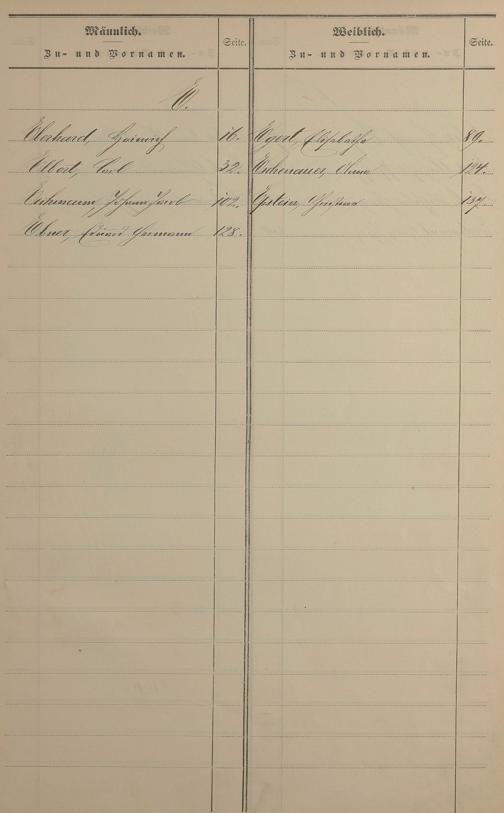 Männlich.
Zu- und Vornamen.
Seite.
Weiblich.
Zu- und Vornamen.
Seite.
E.
Eberhard, Heinrich 16.
Elbert, Carl 32.
Eschmann, Johann Jacob 102.
Ebner, Eduard Hermann 128.
Egert, Elisabetha 89.
Eschenauer, Anna 124.
Epstein, Christina 137.